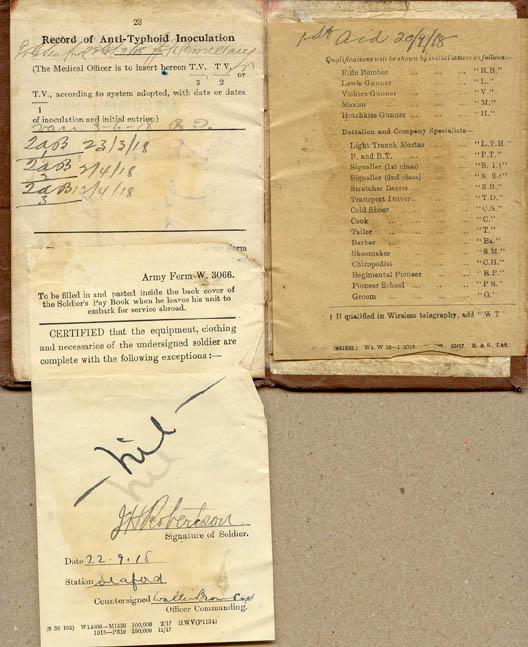 23
Record of Anti-Typhoid Inoculation
(The Medical Officer is to insert hereon T.V. T.V.
3 2 or
T.V., according to system adopted, with date or dates
1
of inoculation and initial entries.)
2aB 23/3/18
2aB 2/4/18
2
2aB 13/4/18
3
Form
Army Form W. 3066.
To be filled in and pasted inside the back cover of
the Soldier's Pay Book when he leaves his unit to
embark for service abroad.
CERTIFIED that the equipment, clothing
and necessaries of the undersigned soldier are
complete with the following exceptions :—
— nil —
J H Robertson
Signature of Soldier.
Date 22.9.18
Station Seaford
Countersigned
Officer Commanding.
(9 28 105) W14406—M1536 100,000 2/17 HWV(P1134)
1913—P319 150,000 11/17
1st Aid 20/4/18
Qualifications will be shown by initial letters as follows:—
Rifle Bomber ... ... ... "R.B."
Lewis Gunner ... ... ... "L."
Vickers Gunner ... ... ... "V."
Maxim ... ... ... "M."
Hotchkiss Gunner ... ... ... "H."
Battalion and Company Specialists—
Light Trench Mortar ... ... "L.T.M."
P. and B.T. ... ... ... "P.T."
Signaller (1st class) ... ... "S. 1.†"
Signaller (2nd class) ... ... "S. 2.†"
Stretcher Bearer ... ... ... "S.B."
Transport Driver ... ... ... "T.D."
Cold Shoer ... ... ... "C.S."
Cook ... ... ... "C."
Tailor ... ... ... "T."
Barber ... ... ... "Ba."
Shoemaker ... ... ... "S.M."
Chiropodist ... ... ... "C.H."
Regimental Pioneer ... ... "R.P."
Pioneer School ... ... ... "P.S."
Groom ... ... ... "G."
† If qualified in Wireless telegraphy, add "W.T."